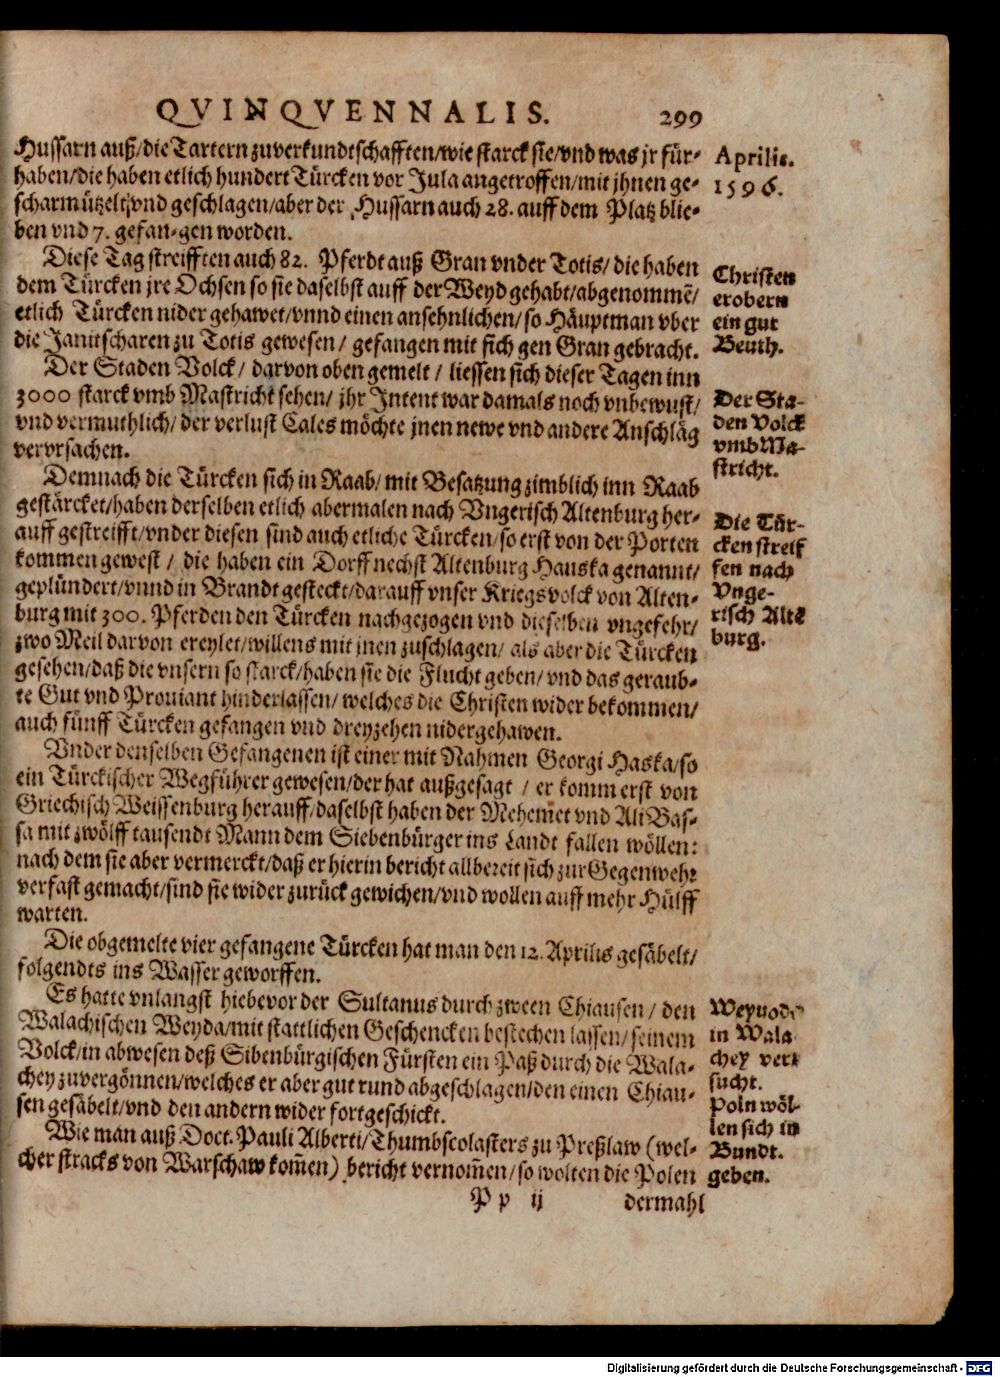 QVINQVENNALIS. 299
Hussarn auß/die Tartern zuverkundtschafften/wie starck sie/vnd was jr für-
haben/die haben etlich hundert Türcken vor Jula angetroffen/mit jhnen ge-
scharmützelt/vnd geschlagen/aber der Hussarn auch 28. auff dem Platz blie-
ben vnd 7. gefan-gen worden.
Aprilis.
1596.
Diese Tag streifften auch 82. Pferdt auß Gran vnder Totis/ die haben
dem Türcken jre Ochsen so sie daselbst auff der Weyd gehabt/abgenommẽ/
etlich Türcken nider gehawet/vnnd einen ansehnlichen/ so Häuptman vber
die Janitscharen zu Totis gewesen/ gefangen mit sich gen Gran gebracht.
Christen
erobern
ein gut
Beuth.
Der Staden Volck/ darvon oben gemelt/ liessen sich dieser Tagen inn
3000 starck vmb Mastricht sehen/ jhr Intent war damals noch vnbewust/
vnd vermuthlich/ der verlust Cales möchte jnen newe vnd andere Anschläg
vervrsachen.
Der Sta-
den Volck
vmb Ma-
stricht.
Demnach die Türcken sich in Raab/ mit Besatzung zimblich inn Raab
gestärcket/haben derselben etlich abermalen nach Vngerisch Altenburg her-
auff gestreifft/vnder diesen sind auch etliche Türcken/so erst von der Porten
kommen gewest/ die haben ein Dorff nechst Altenburg Hauska genannt/
geplündert/vnnd in Brandt gesteckt/darauff vnser Kriegsvolck von Alten-
burg mit 300. Pferden den Türcken nachgezogen vnd dieselben vngefehr/
zwo Meil darvon ereylet/willens mit jnen zuschlagen/ als aber die Türcken
gesehen/daß die vnsern so starck/haben sie die Flucht geben/ vnd das geraub-
te Gut vnd Proviant hinderlassen/ welches die Christen wider bekommen/
auch fünff Türcken gefangen vnd dreyzehen nidergehawen.
Die Tür-
cken streif
fen nach
Vnge-
risch Altẽ
burg.
Vnder denselben Gefangenen ist einer mit Nahmen Georgi Haska/so
ein Türckischer Wegführer gewesen/der hat außgesagt / er komm erst von
Griechisch Weissenburg herauff/daselbst haben der Mehemet vnd Ali Bas-
sa mit zwölff tausendt Mann dem Siebenbürger ins Landt fallen wöllen:
nach dem sie aber vermerckt/daß er hierin bericht allbereit sich zur Gegenwehr
verfast gemacht/sind sie wider zurück gewichen/vnd wollen auff mehr Hülff
warten.
Die obgemelte vier gefangene Türcken hat man den 12. Aprilis gesäbelt/
folgendts ins Wasser geworffen.
Es hatte vnlangst hiebevor der Sultanus durch zween Chiausen/ den
Walachischen Weyda/mit stattlichen Geschencken bestechen lassen/ seinem
Volck/in abwesen deß Sibenbürgischen Fürsten ein Paß durch die Wala-
chey zuvergönnen/welches er aber gut rund abgeschlagen/den einen Chiau-
sen gesäbelt/vnd den andern wider fortgeschickt.
Weyvode
in Wala
chey ver-
sucht.
Wie man auß Doct. Pauli Alberti/Thumbscolasters zu Preßlaw (wel-
cher stracks von Warschaw kom̃en) bericht vernom̃en/so wolten die Polen
Poln wöl-
len sich in
Bundt.
geben.
P p ij dermahl
Digitalisierung gefördert durch die Deutsche Forschungsgemeinschaft - DFG